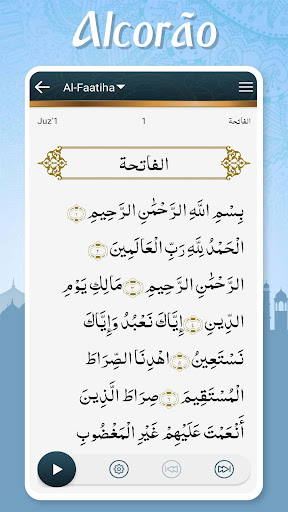 Alcorão
Al-Faatiha
Juz'1 1 الفاتحة
الفاتحة
بِسْمِ اللَّهِ الرَّحْمَٰنِ الرَّحِيمِ ١
الْحَمْدُ لِلَّهِ رَبِّ الْعَالَمِينَ ٢
الرَّحْمَٰنِ الرَّحِيمِ ٣ مَالِكِ يَوْمِ
الدِّينِ ٤ إِيَّاكَ نَعْبُدُ وَإِيَّاكَ
نَسْتَعِينُ ٥ اهْدِنَا الصِّرَاطَ
الْمُسْتَقِيمَ ٦ صِرَاطَ الَّذِينَ
أَنْعَمْتَ عَلَيْهِمْ غَيْرِ الْمَغْضُوبِ